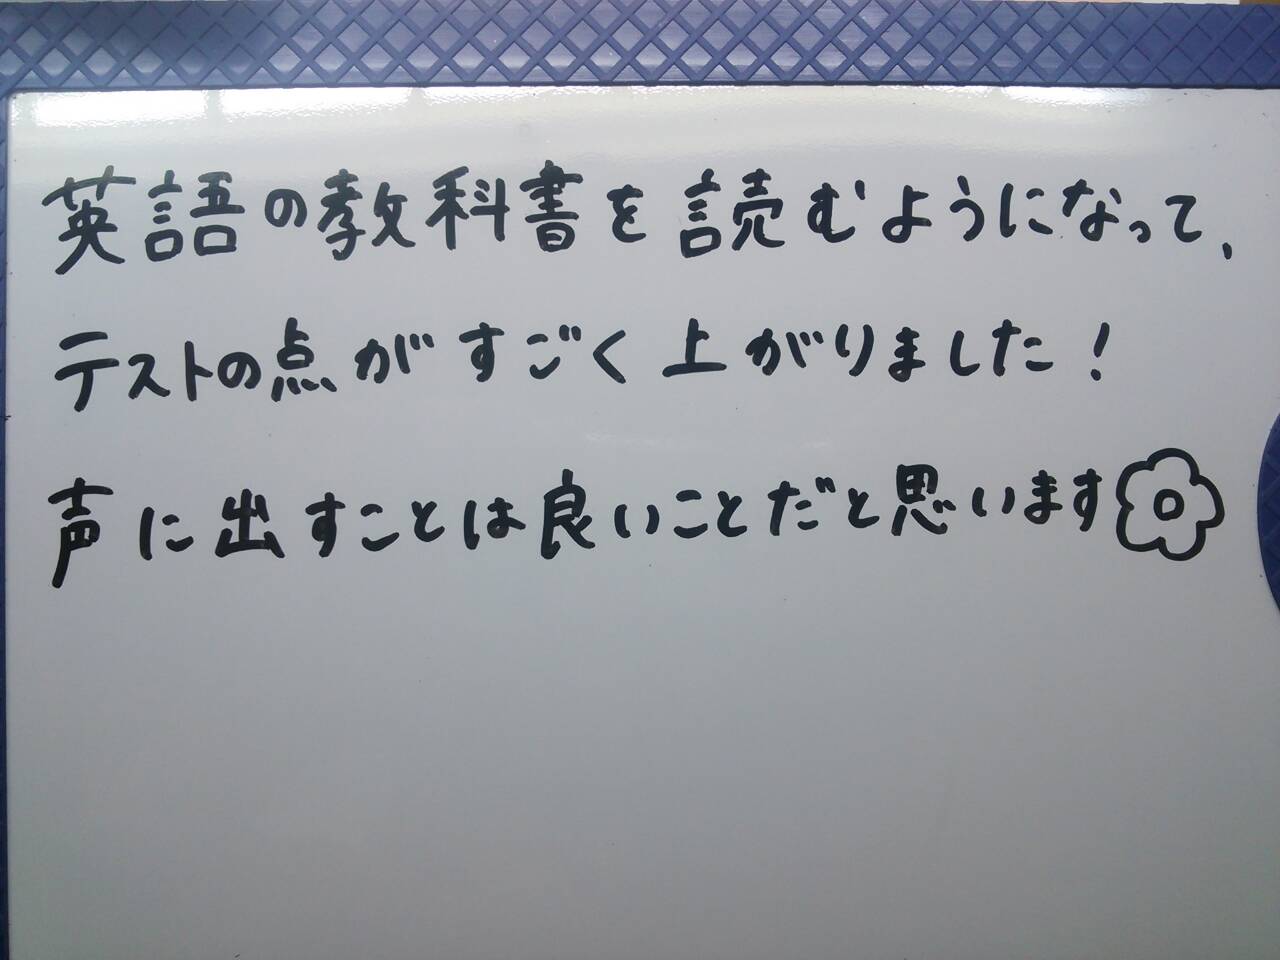 英語の教科書を読むようになって、
テストの点がすごく上がりました！
声に出すことは良いことだと思います